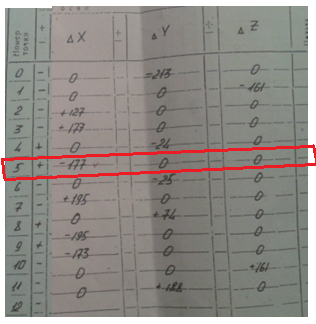 Номер точки + - Δ X ± Δ Y ÷ Δ Z
0 - 0 -213 0
1 - 0 0 -161
2 - +127 0 0
3 - +177 0 0
4 + 0 -24 0
5 + -177 0 0
6 - 0 -25 0
7 - +195 0 0
8 + 0 +74 0
9 + -195 0 0
10 -173 0 0
11 - 0 0 +161
12 - 0 +188 0